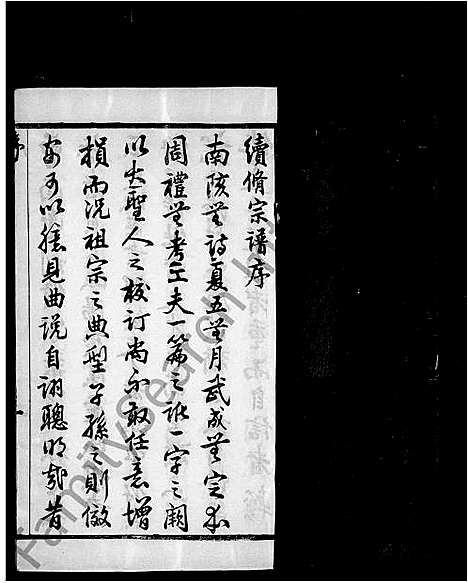 續脩宗譜序
南陔無詩夏五無月武成無定本
周禮無考工夫一篇之訛一字之闕
以大聖人之校訂尚不敢任意增
損而況祖宗之典型子孫之則傚
安可以臆見曲說自詡聰明哉昔
序
一
FamilySearch